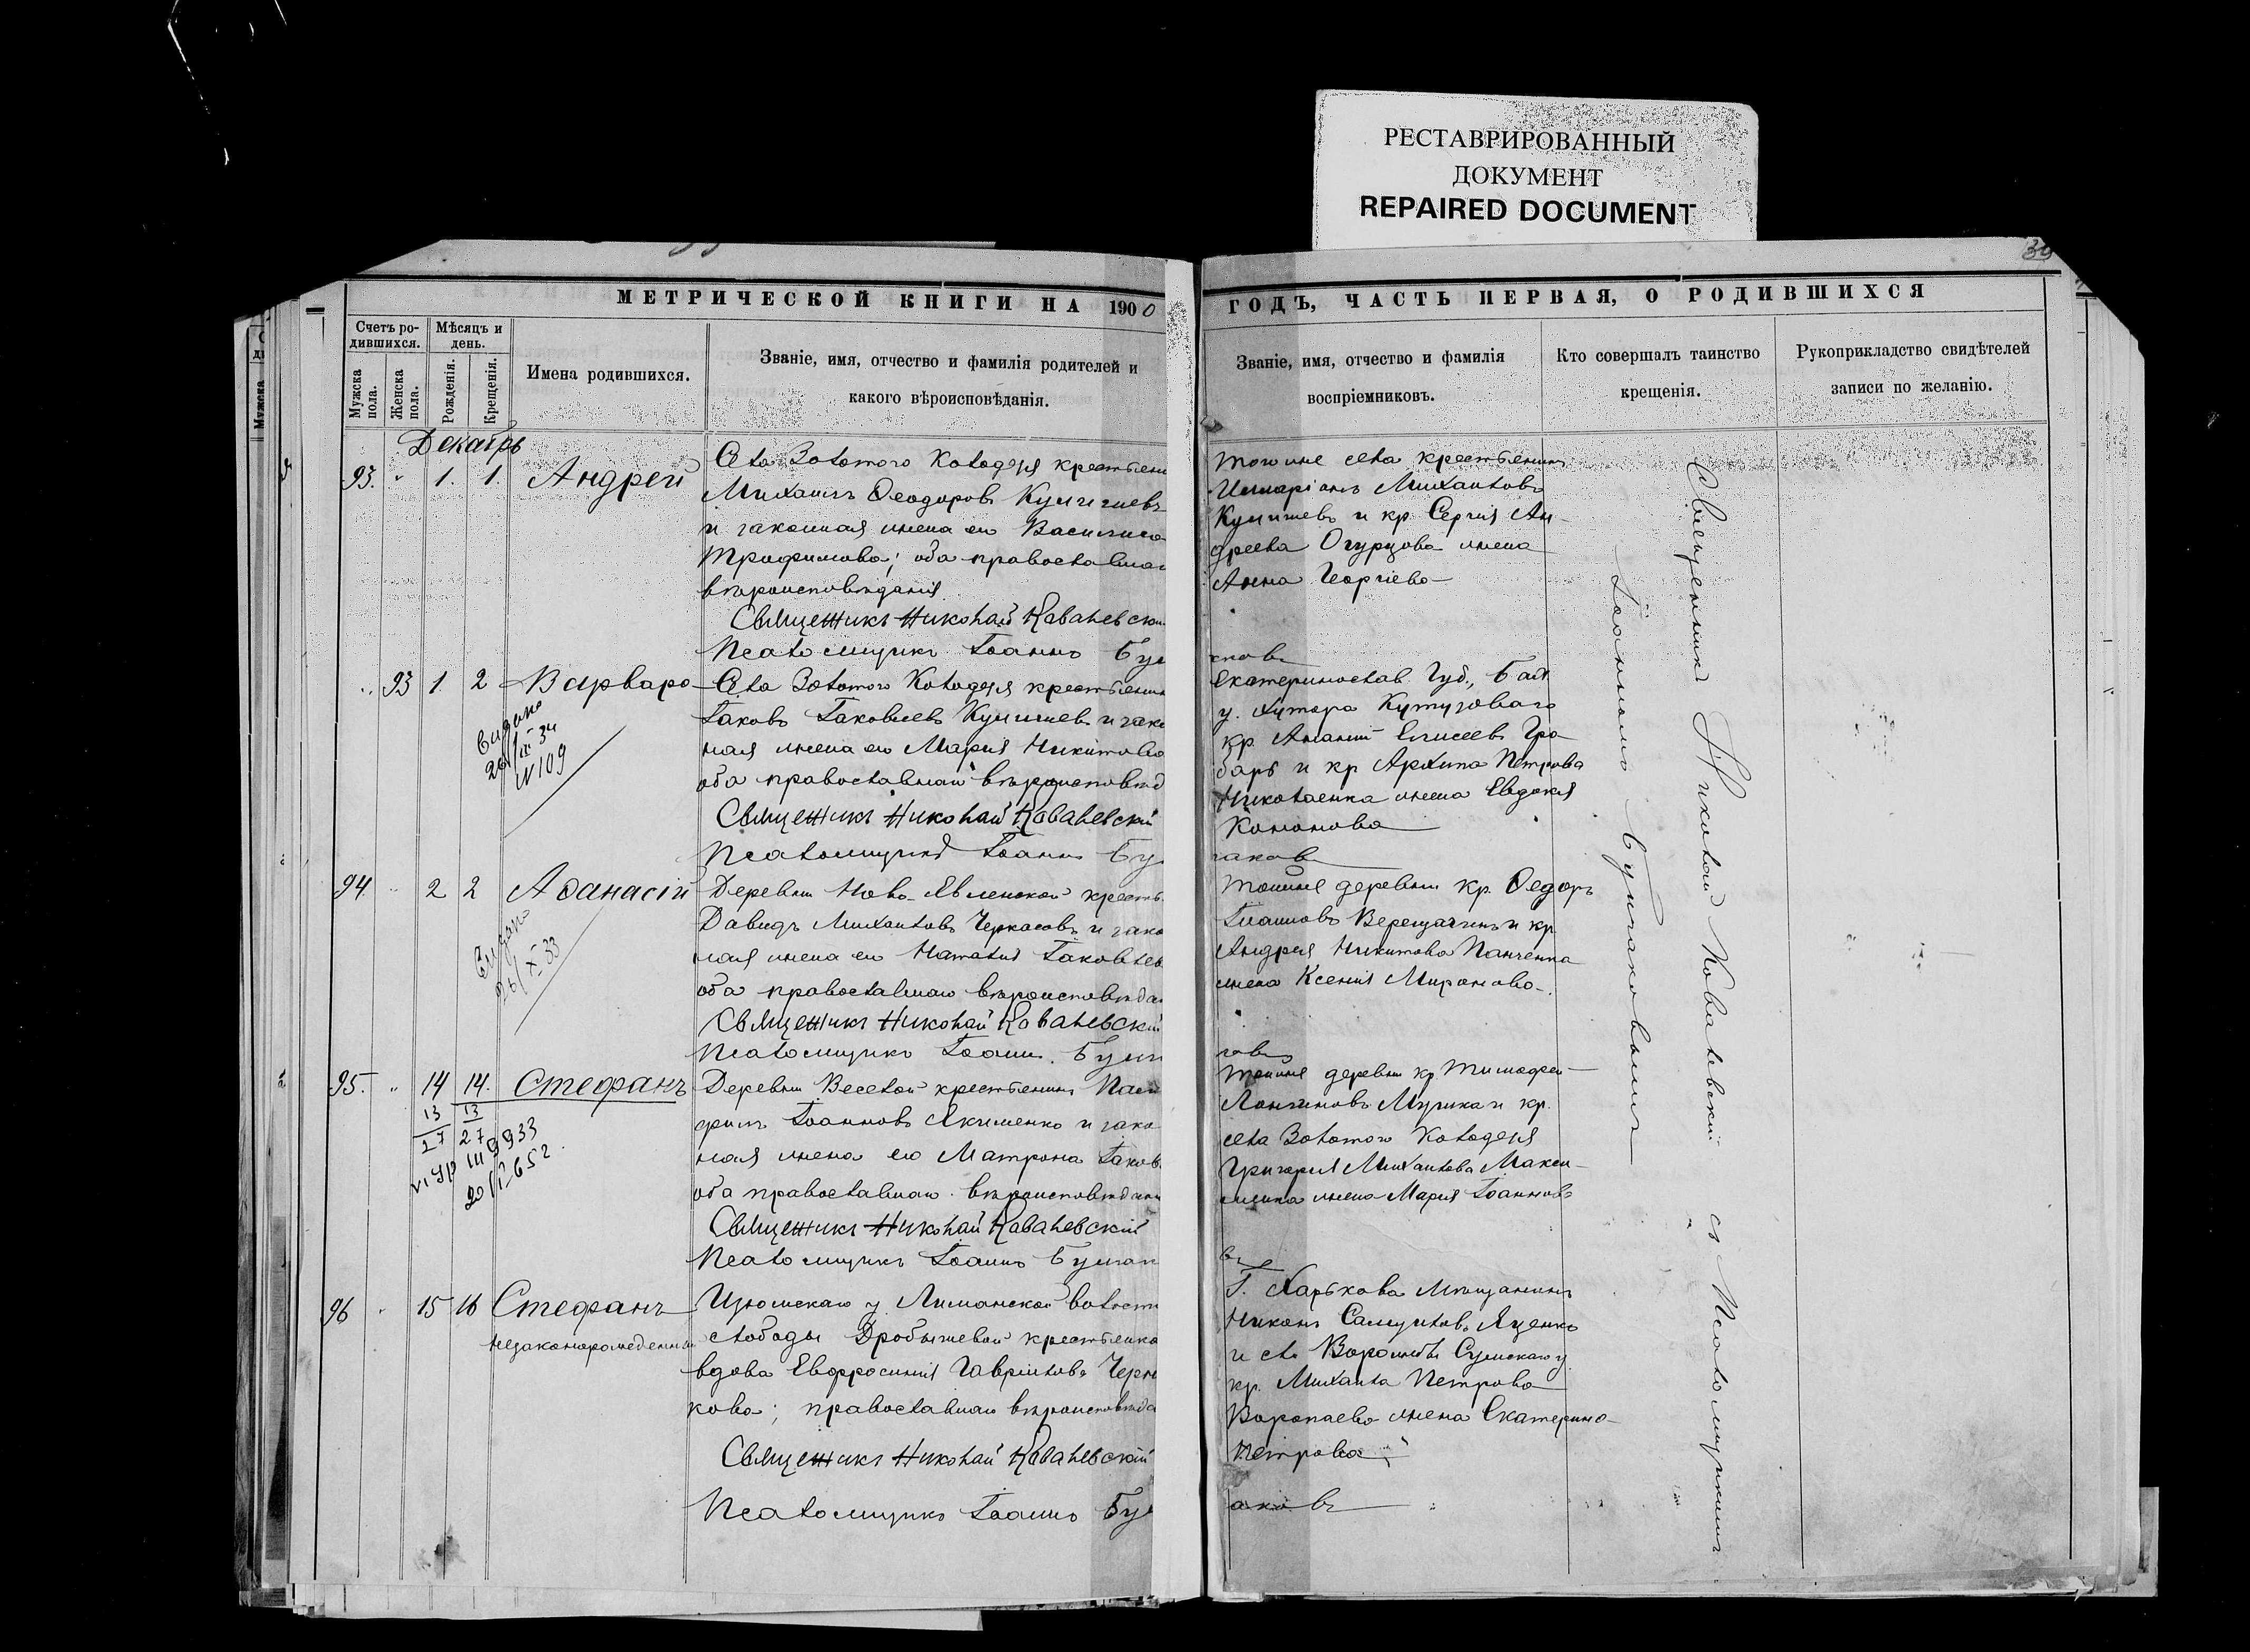 РЕСТАВРИРОВАННЫЙ
ДОКУМЕНТ
REPAIRED DOCUMENT
39
МЕТРИЧЕСКОЙ КНИГИ НА 1900
ГОДЪ, ЧАСТЬ ПЕРВАЯ, О РОДИВШИХСЯ
Счетъ ро-
дившихся.
Мужска
пола.
Женска
пола.
Мѣсяцъ и
день.
Рожденія.
Крещенія.
Имена родившихся.
Званіе, имя, отчество и фамилія родителей и
какого вѣроисповѣданія.
Званіе, имя, отчество и фамилія
воспріемниковъ.
Кто совершалъ таинство
крещенія.
Рукоприкладство свидѣтелей
записи по желанію.
Декабрь
93. " 1. 1. Андрей
Села Золотого Колодезя крестьянин
Михаилъ Ѳеодоровъ
и законная жена его Василиса
Трифимова; оба православнаг
вѣроисповѣданія.
Священникъ Николай Ковалевскій
Псаломщикъ Іоаннъ
тогоже села крестьянинъ
Михаиловъ
и кр. Сергія Ан-
дреева Огурцова жена
Анна Георгіева
93 1 2 Варвара
Села Золотого Колодезя крестьянин
Іаковъ Іаковлевъ и зако
ная жена его Марія Никитова
оба православнаго вѣроисповѣд
Священникъ Николай Ковалевскій
Псаломщикъ Іоаннъ Бу
Екатеринослав. Губ., Бах.
у. хутора Кутузоваго
кр. Ананій Елисеевъ Гра
барь и кр Архипа Петрова
Николаенка жена Евдокія
Кононова
Выдано
26/IX 34
N 109
94 " 2 2 Аѳанасій
Деревни Ново-Явленской кресть
Давидъ Михаиловъ Черкасовъ и зако
ная жена его Наталія Іаковлев
оба православнаго вѣроисповѣдан
Священникъ Николай Ковалевскій
Псаломщикъ Іоаннъ
тойже деревни кр. Ѳедоръ
Верещагинъ и кр
Андрея Никитова Панченка
жена Ксенія Миронова
26/X 33
95. " 14 14. Стефанъ
13 13
27 27
Деревни Веселой крестьянинъ
Іоанновъ Якименко и зако
ная жена его Матрона Іаков
оба православнаго вѣроисповѣдан
Священникъ Николай Ковалевскій
Псаломщикъ Іоаннъ
въ
тойже деревни кр Тимофей
Лонгиновъ и кр.
села Золотого Колодезя
Григорія Михаилова Макси-
менка жена Марія Іоаннова
96 15 16 Стефанъ
незаконорожденный
Изюмскаго у. Лиманской волости
слободы Дробышевой крестьянка
вдова Евфросинія Гавріилова Черн
кова; православнаго вѣроисповѣда
Священникъ Николай Ковалевскій
Псаломщикъ Іоаннъ Бу
Г. Харькова Мѣщанинъ
Никонъ Самуиловъ Яценко
и сл. Сумскаго у.
кр. Михаила Петрова
Воропаева жена Екатерина
Петрова
аковъ
Священникъ Николай Ковалевскій съ Псаломщикомъ
Іоанномъ Булгаковымъ